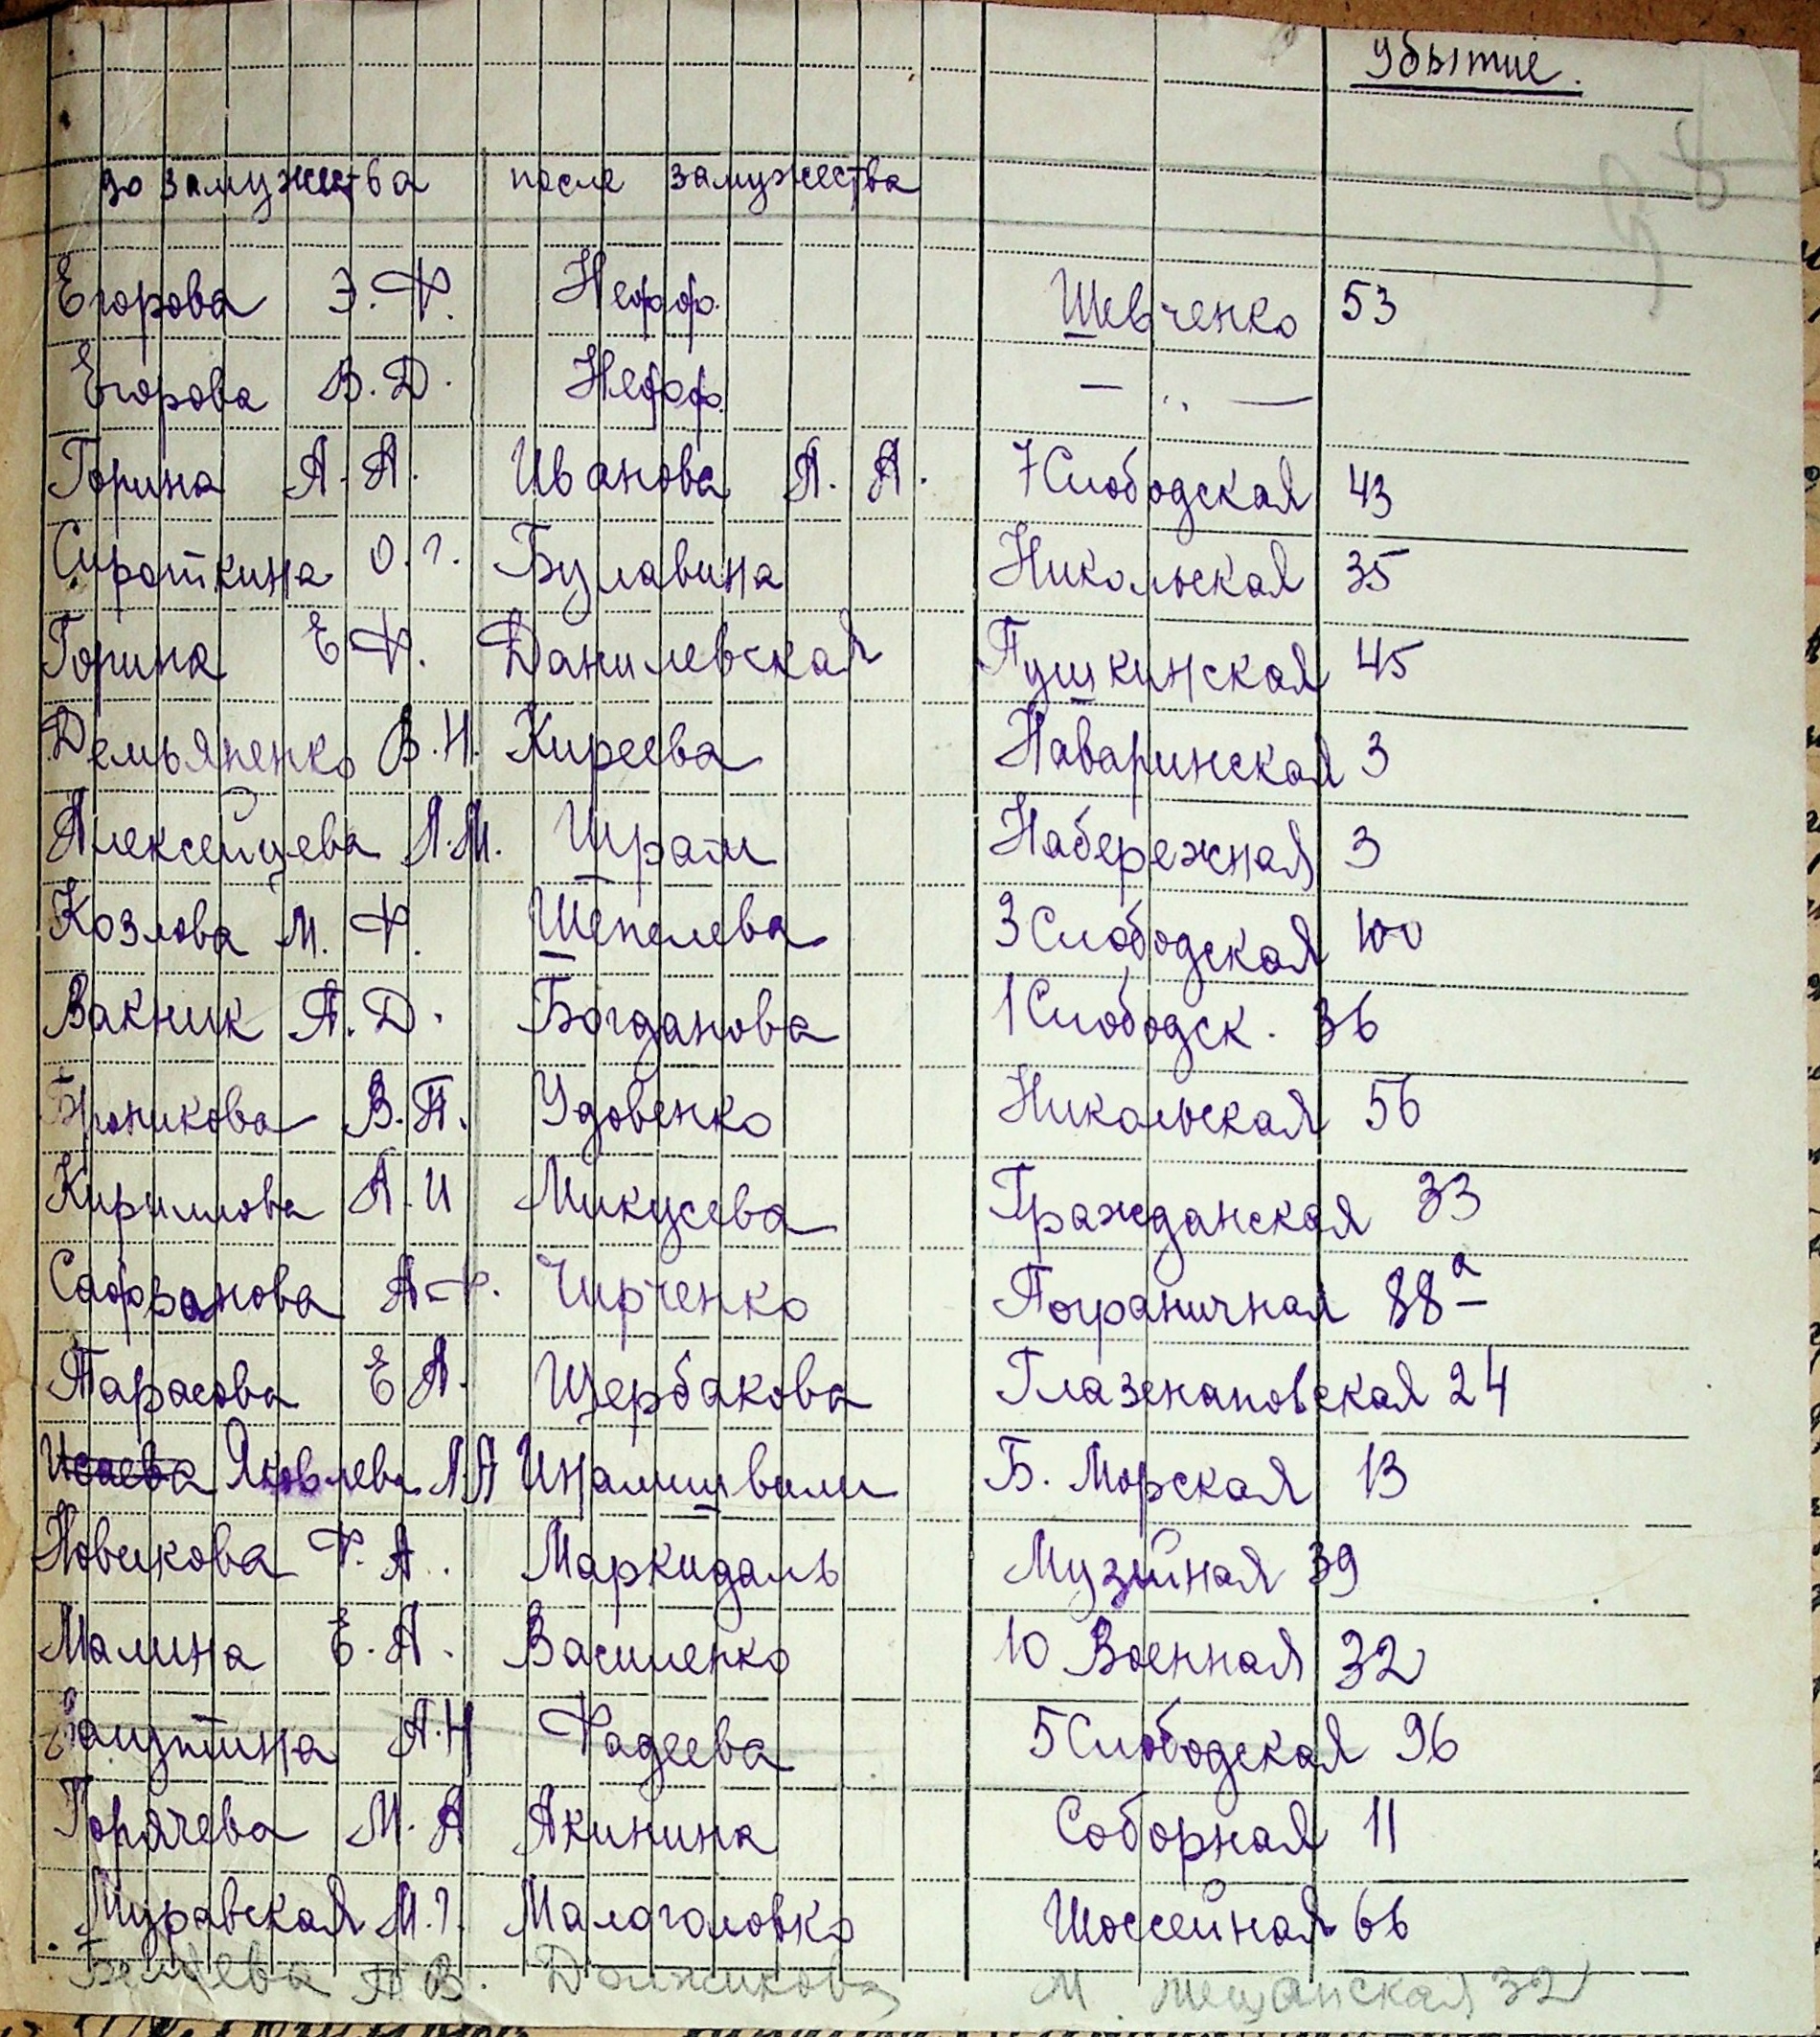 Убытие.
до замужества после замужества
Егорова Э.Ф. Нефф. Шевченко 53
Егорова В.Д. Нефф. — ,, —
Горина А.А. Иванова А.А. 7 Слободская 43
Сироткина О.Г. Булавина Никольская 35
Горина Е.Ф. Данилевская Пушкинская 45
Демьяненко В.Н. Киреева Наваринская 3
Алексейцева Л.М. Шрам Набережная 3
Козлова М.Ф. Шепелева 3 Слободская 100
Вакник А.Д. Богданова 1 Слободск. 36
Броникова В.П. Удовенко Никольская 56
Кириллова А.И Микусева Гражданская 33
Сафранова А.Ф. Чирченко Пограничная 88а
Тарасова Е А. Щербакова Глазенаповская 24
Исаева Яковлева Л.А Инамишвили Б. Морская 13
Новикова Ф.А. Маркидаль Музейная 39
Малина Е.А. Василенко 10 Военная 32
А.Н Фадеева 5 Слободская 96
Горячева М.А Акинина Соборная 11
Муравская М.Г. Малоголовко Шоссейная 66
Беляева А.В. Должикова М. Мещанская 32